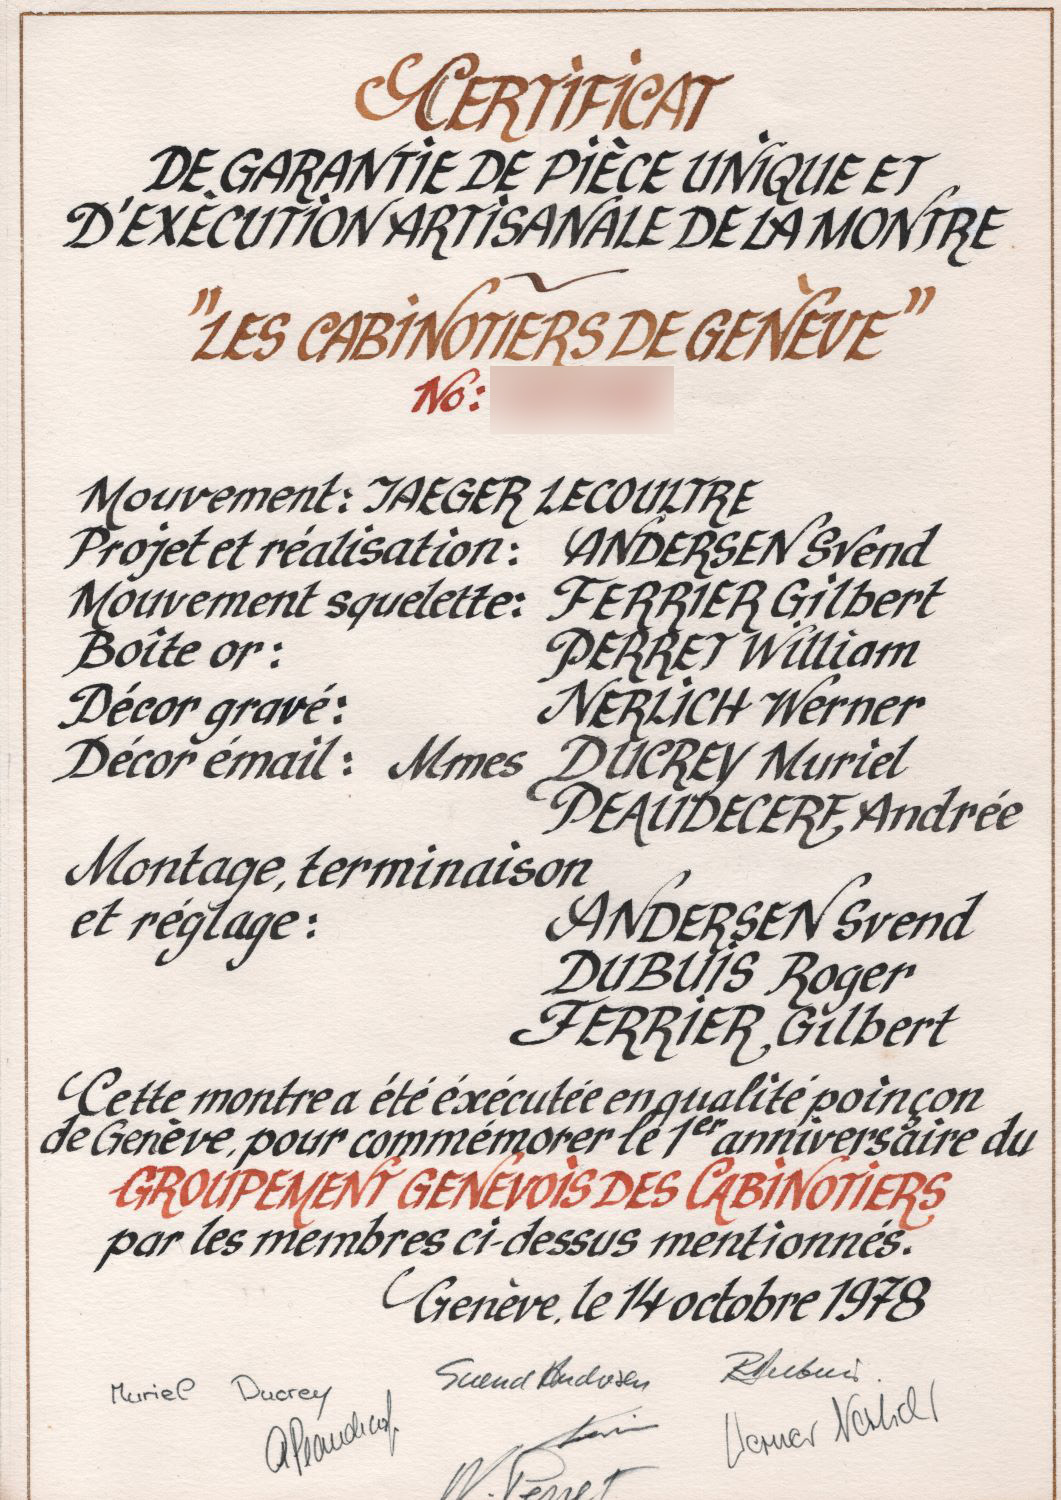 CERTIFICAT
DE GARANTIE DE PIÈCE UNIQUE ET
D'EXÈCUTION ARTISANALE DE LA MONTRE
"LES CABINOTIERS DE GENÈVE"
No:
Mouvement: JAEGER LECOULTRE
Projet et réalisation: ANDERSEN Svend
Mouvement squelette: FERRIER Gilbert
Boîte or: PERRET William
Décor gravé: NERLICH Werner
Décor émail: Mmes DUCREY Muriel
PEAUDECERF Andrée
Montage, terminaison
et réglage: ANDERSEN Svend
DUBUIS Roger
FERRIER Gilbert
Cette montre a été éxécutée en qualité poinçon
de Genève, pour commémorer le 1er anniversaire du
GROUPEMENT GENEVOIS DES CABINOTIERS
par les membres ci-dessus mentionnés.
Genève, le 14 octobre 1978
Muriel Ducrey Svend Andersen RDubuis
APeaudecerf Werner Nerlich
W. Perret